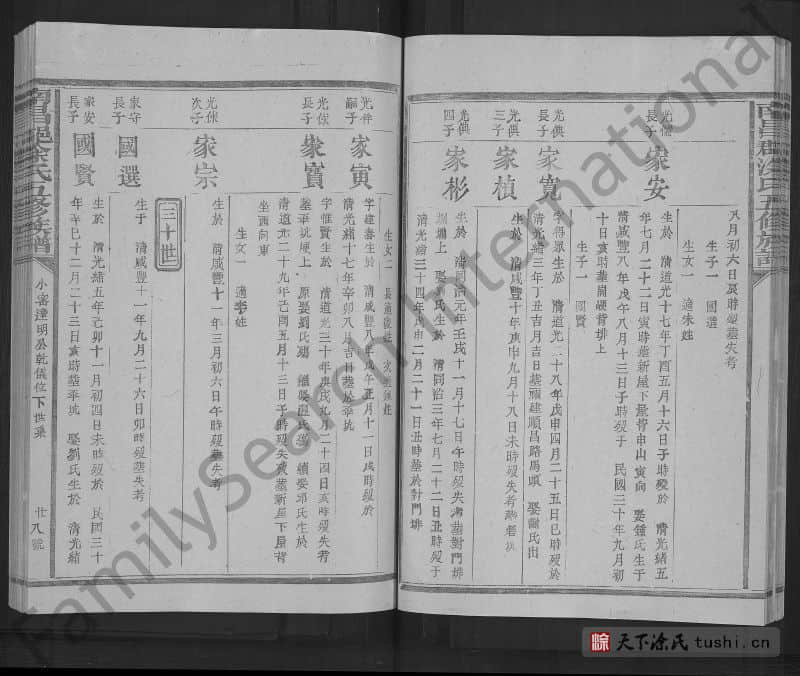 八月初六日亥時殁墓失考
生子一 國選
生女一 適朱姓
光儒長子 家安 生於 清道光十七年丁酉五月十六日子時殁於 清光緒五
年七月二十二日寅時葬新屋下屋背申山寅向 娶鍾氏生于
清咸豐八年戊午八月十三日子時殁于 民國三十年九月初
十日亥時葬崗湖背排上
生子一 國賢
光俱長子 家寬 字得眾生於 清道光二十八年戊申四月二十五日巳時殁於
清光緒三年丁丑吉月吉日墓福建順昌路馬頭 娶謝氏出
光俱三子 家楨 生於 清咸豐十年庚申九月十八日未時殁失考
光俱四子 家彬 生於 清同治元年壬戌十一月十七日午時殁失考墓對門排
上 娶 氏生於 清同治三年七月二十二日丑時殁于
清光緒三十四年戊申二月二十一日丑時墓於對門排
生女二 長適 姓 次適陳姓
嗣子 家寅 字建春生於 清咸豐八年戊午正月十一日戌時殁於
清光緒十七年辛卯八月吉日墓於寨坑
光俅長子 家賓 字惟賢生於 清道光三十年庚戌九月二十四日亥時殁失考
墓寨坑坡上 原娶劉氏殁 繼娶溫氏殁 續娶邱氏生於
清道光二十九年己酉五月十三日子時殁失考墓新屋下屋背
坐西向東
生女一 適李姓
光俅次子 家宗 生於 清咸豐十一年三月初六日午時殁墓失考
三十世
家守長子 國選 生于 清咸豐十一年九月二十六日卯時殁墓失考
家安長子 國賢 生於 清光緒五年己卯十一月初四日未時殁於 民國三十
年辛巳十二月二十三日亥時墓寨坑 娶劉氏生於 清光緒
小密達明公乾儀位下世系
廿八號
FamilySearch International
天下涂氏 tushi.cn